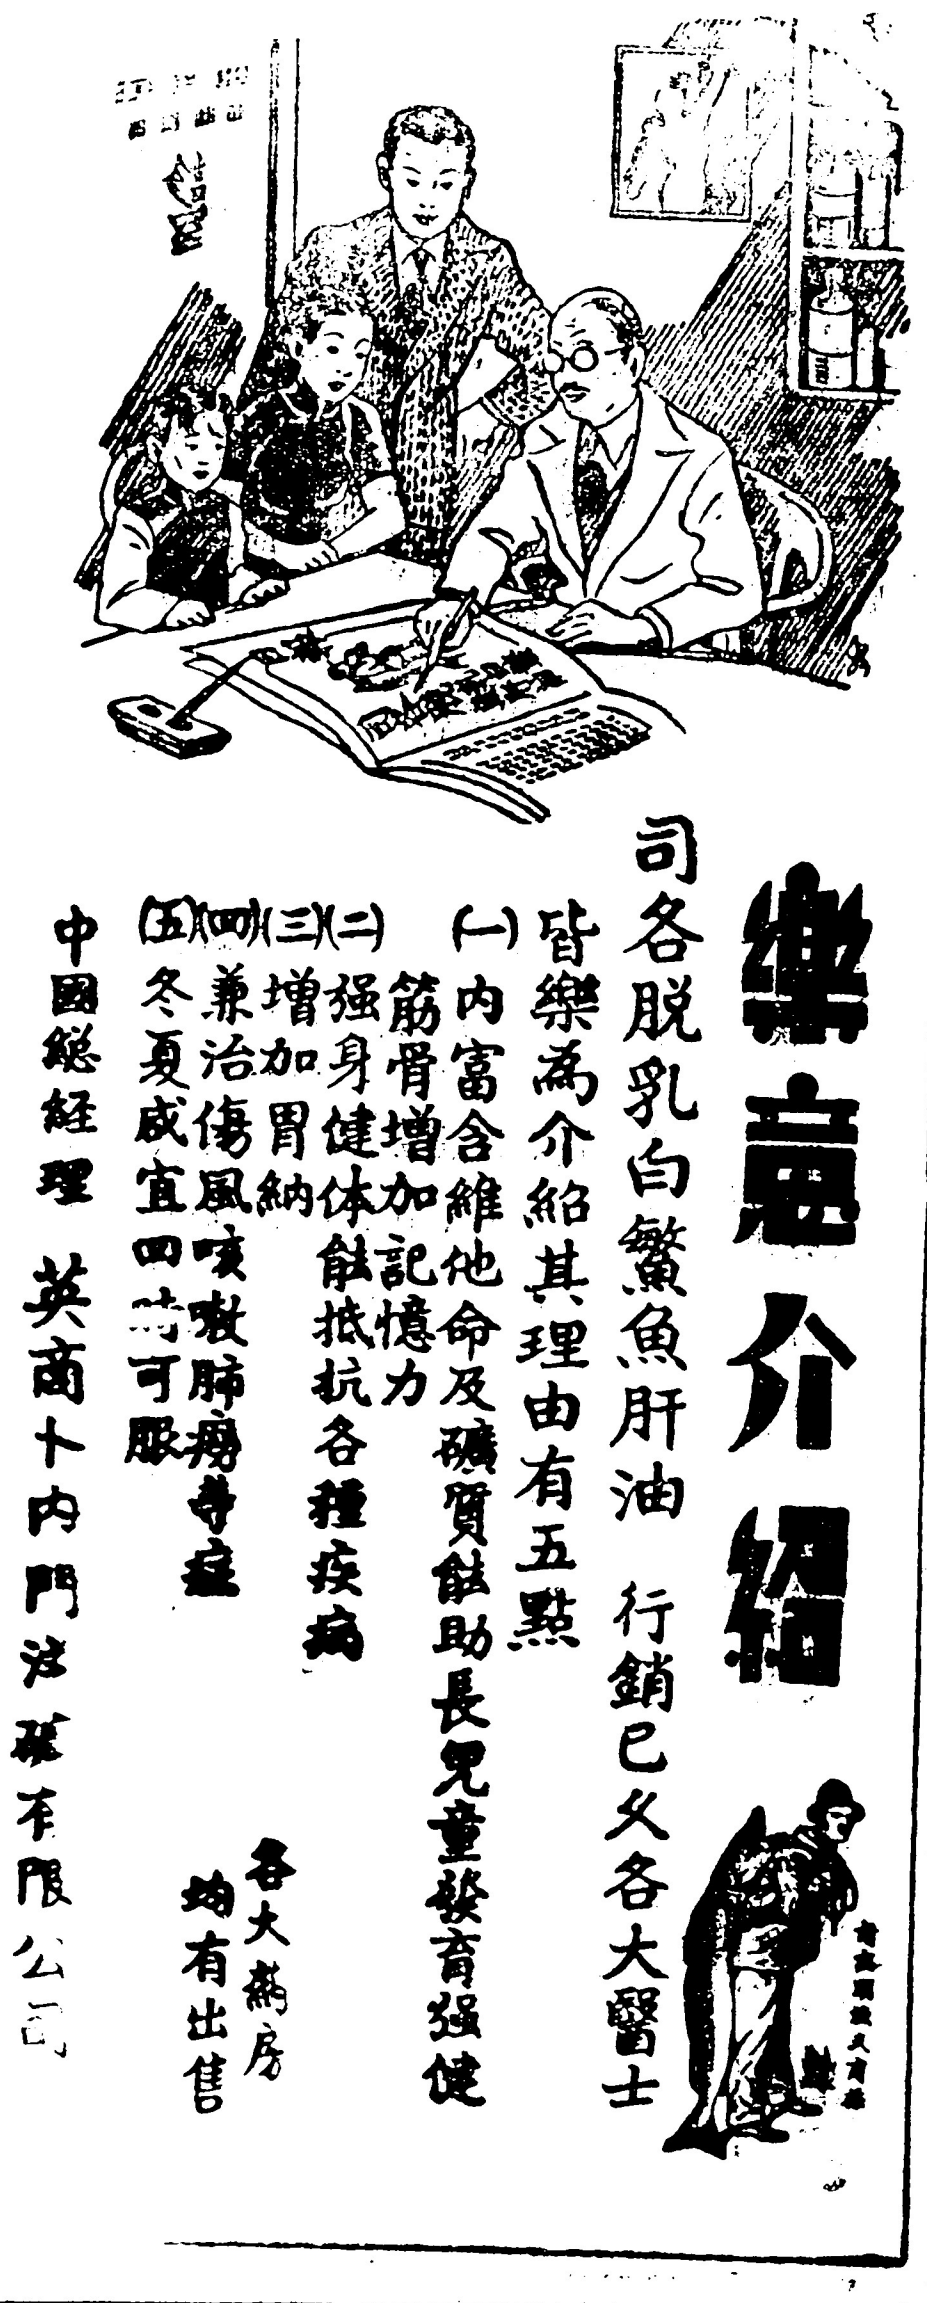 樂意介紹
司各脫乳白鰵魚肝油 行銷已久各大醫士
皆樂為介紹其理由有五點
(一)內富含維他命及礦質能助長兒童發育强健
筋骨增加記憶力
(二)强身健体能抵抗各種疾病
(三)增加胃納
(四)兼治傷風咳嗽肺癆等症
(五)冬夏咸宜四時可服
各大藥房
均有出售
中國総経理 英商卜內門洋碱有限公司